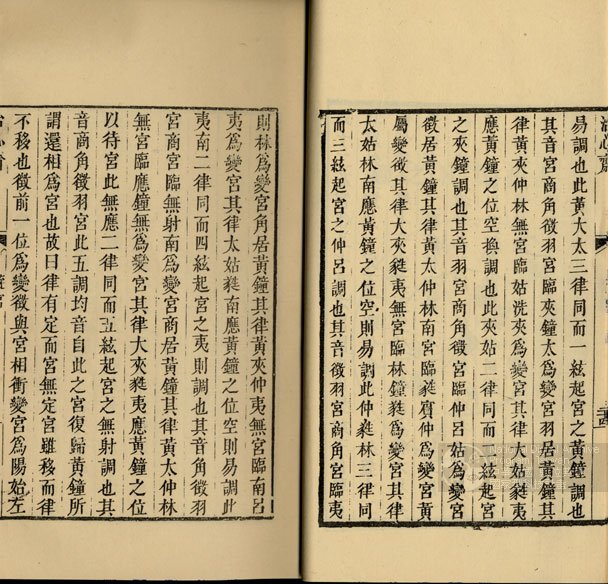 治心齋
易調也此黃大太三律同而一絃起宮之黃鐘調也
其音宮商角徵羽宮臨夾鐘太為變宮羽居黃鐘其
律黃夾仲林無宮臨姑洗夾為變宮其律大姑蕤夷
應黃鐘之位空換調也此夾姑二律同而絃起宮
之夾鐘調也其音羽宮商角徵宮臨仲呂姑為變宮
徵居黃鐘其律黃太仲林南宮臨蕤賓仲為變宮黃
屬變徵其律黃大夾蕤夷無宮臨林鐘蕤為變宮其律
太姑林南應黃鐘之位空則易調此仲蕤林三律同
而三絃起宮之仲呂調也其音徵羽宮商角宮臨夷
則林為變宮角居黃鐘其律黃夾仲夷無宮臨南呂
夷為變宮其律太姑蕤南應黃鐘之位空則易調此
夷南二律同而四絃起宮之夷則調也其音角徵羽
宮商宮臨無射南為變宮商居黃鐘其律黃太仲林
無宮臨應鐘無為變宮其律大夾蕤夷應黃鐘之位
以待宮此無應二律同而五絃起宮之無射調也其
音商角徵羽宮此五調均音自此之宮復歸黃鐘所
謂還相為宮也故曰律有定而宮無定宮雖移而律
不移也徵前一位為變徵與宮相衝變宮為陽始左